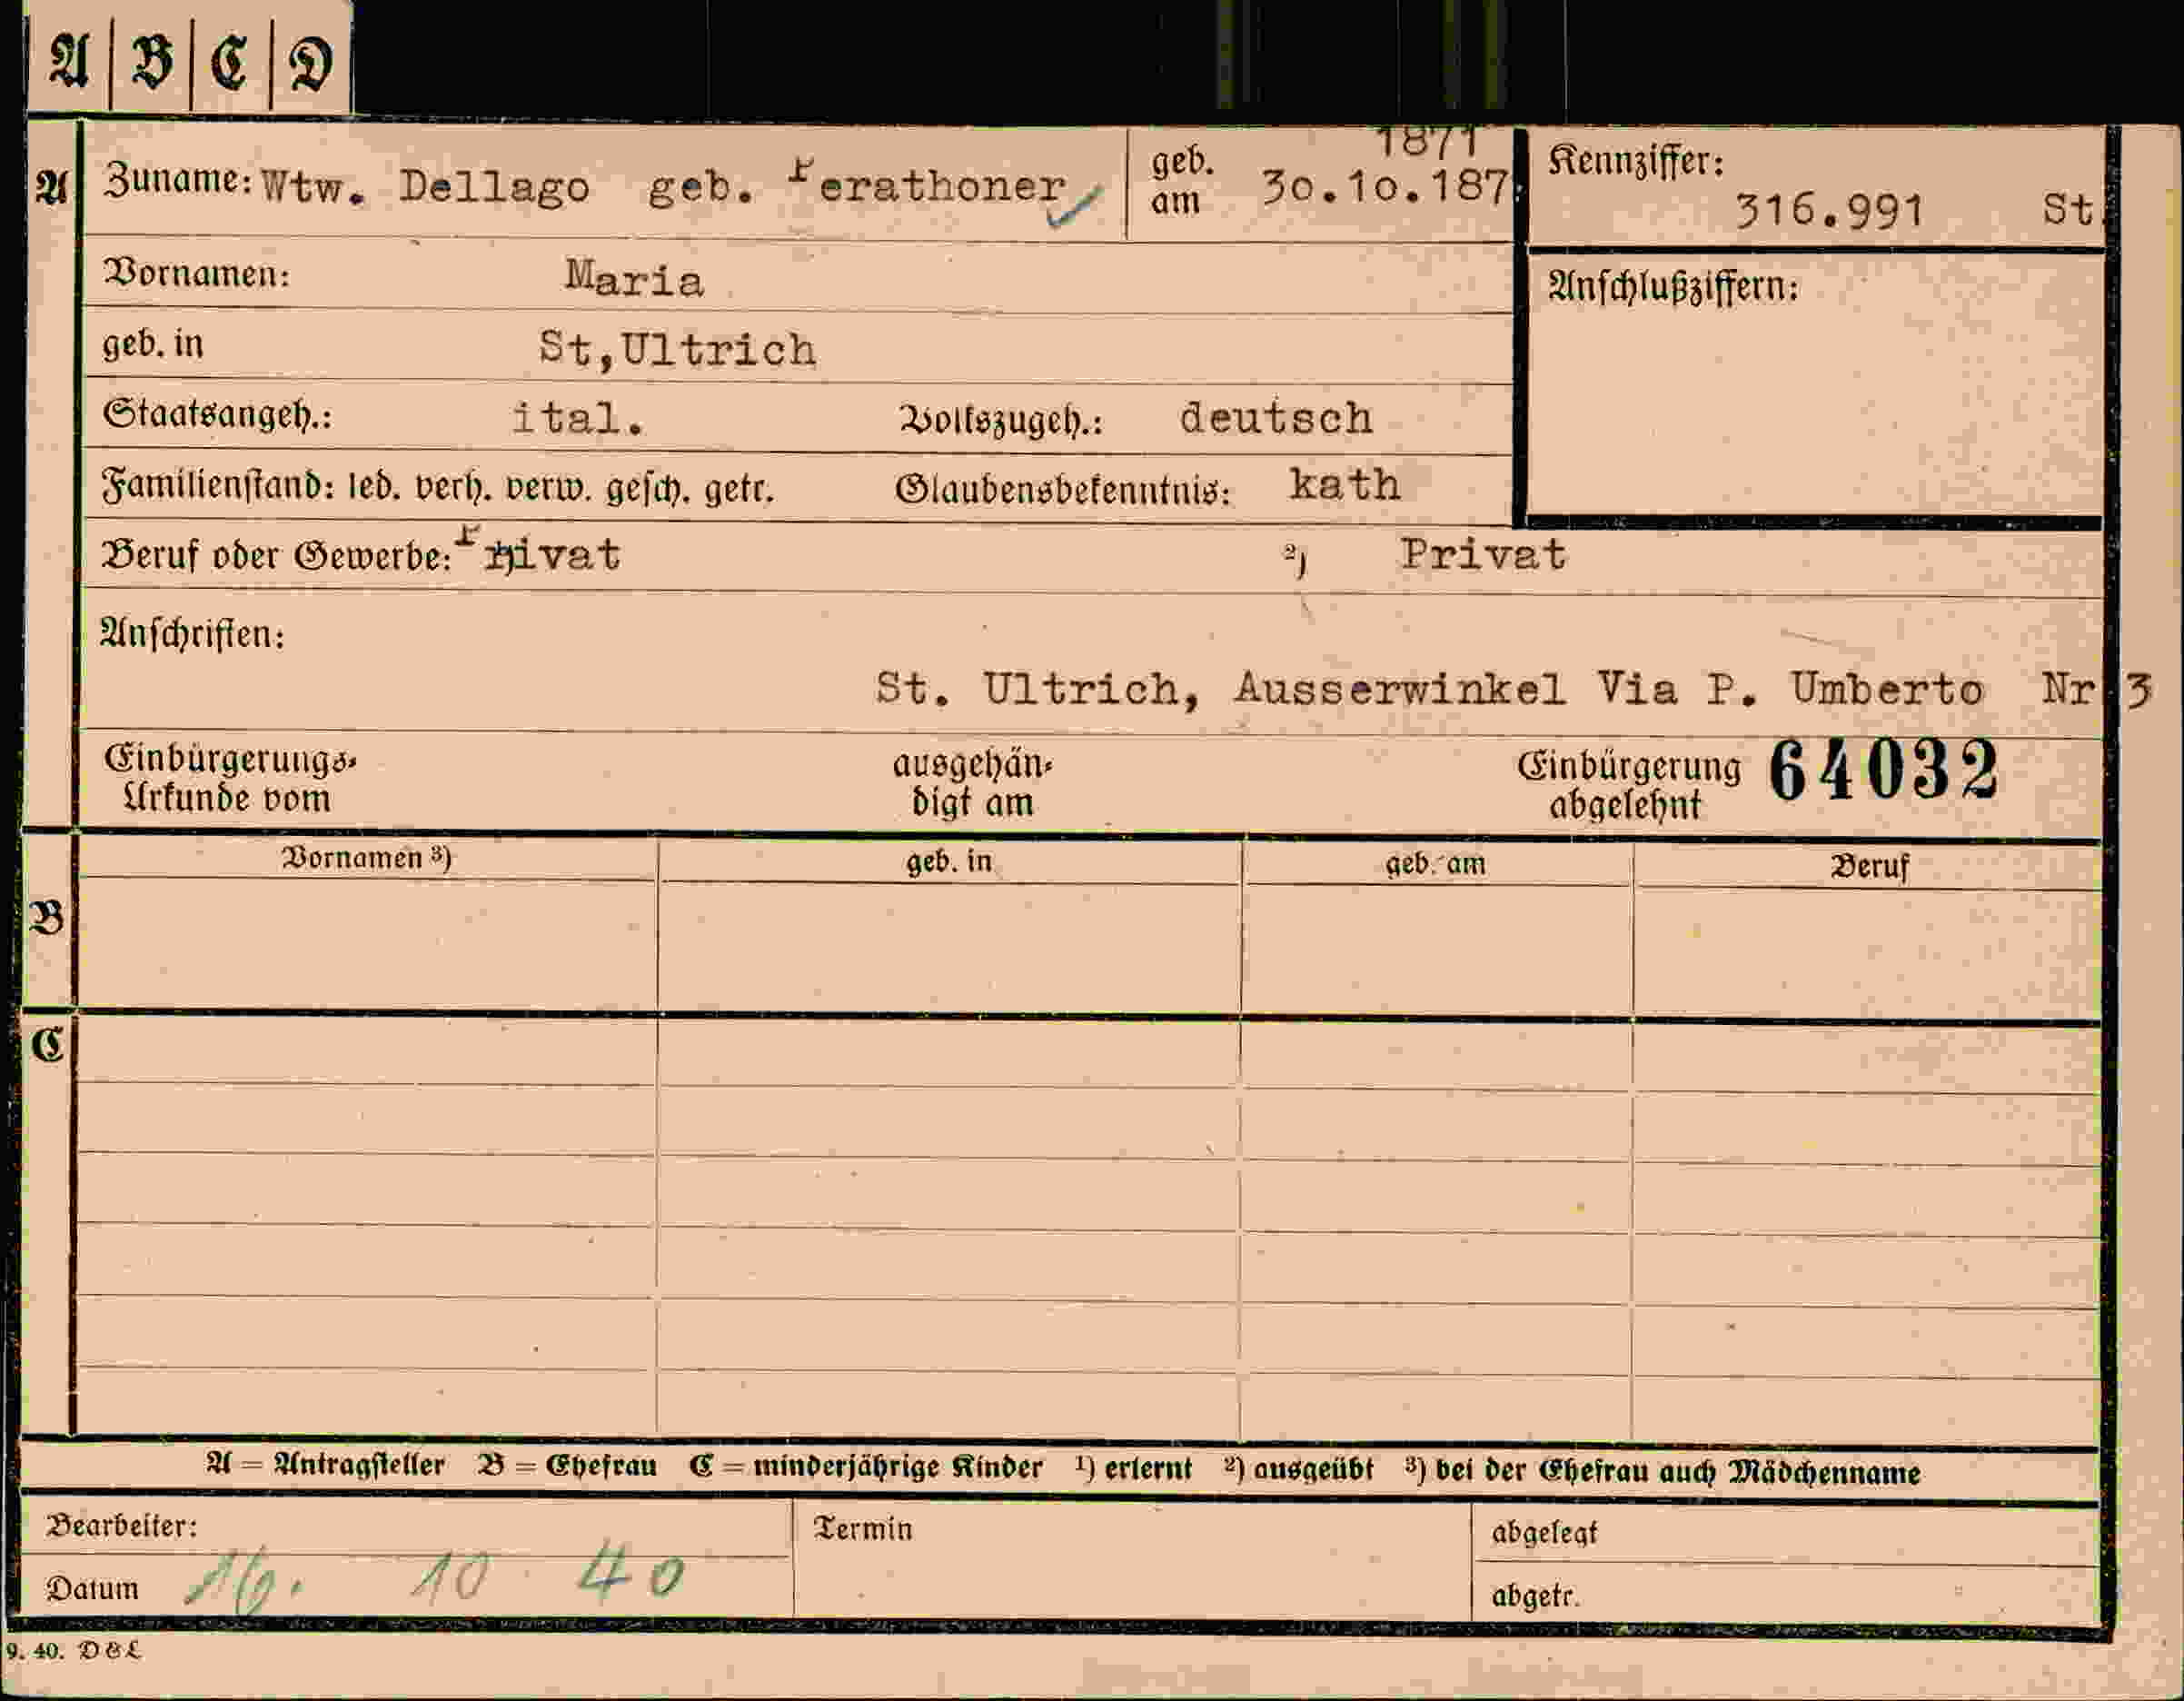 A B C D
A Zuname: Wtw. Dellago geb. Perathoner geb. am 1871 30.10.187 Kennziffer: 316.991 St.
Vornamen: Maria Anschlußziffern:
geb. in St,Ultrich
Staatsangeh.: ital. Volkszugeh.: deutsch
Familienstand: led. verh. verw. gesch. getr. Glaubensbekenntnis: kath
Beruf oder Gewerbe: Privat ²) Privat
Anschriften:
St. Ultrich, Ausserwinkel Via P. Umberto Nr 3
Einbürgerungs- ausgehän- Einbürgerung 64032
Urkunde vom digt am abgelehnt
Vornamen ³) geb. in geb. am Beruf
B
C
A = Antragsteller B = Ehefrau C = minderjährige Kinder ¹) erlernt ²) ausgeübt ³) bei der Ehefrau auch Mädchenname
Bearbeiter: Termin abgelegt
Datum 16. 10 40 abgetr.
9. 40. D & L